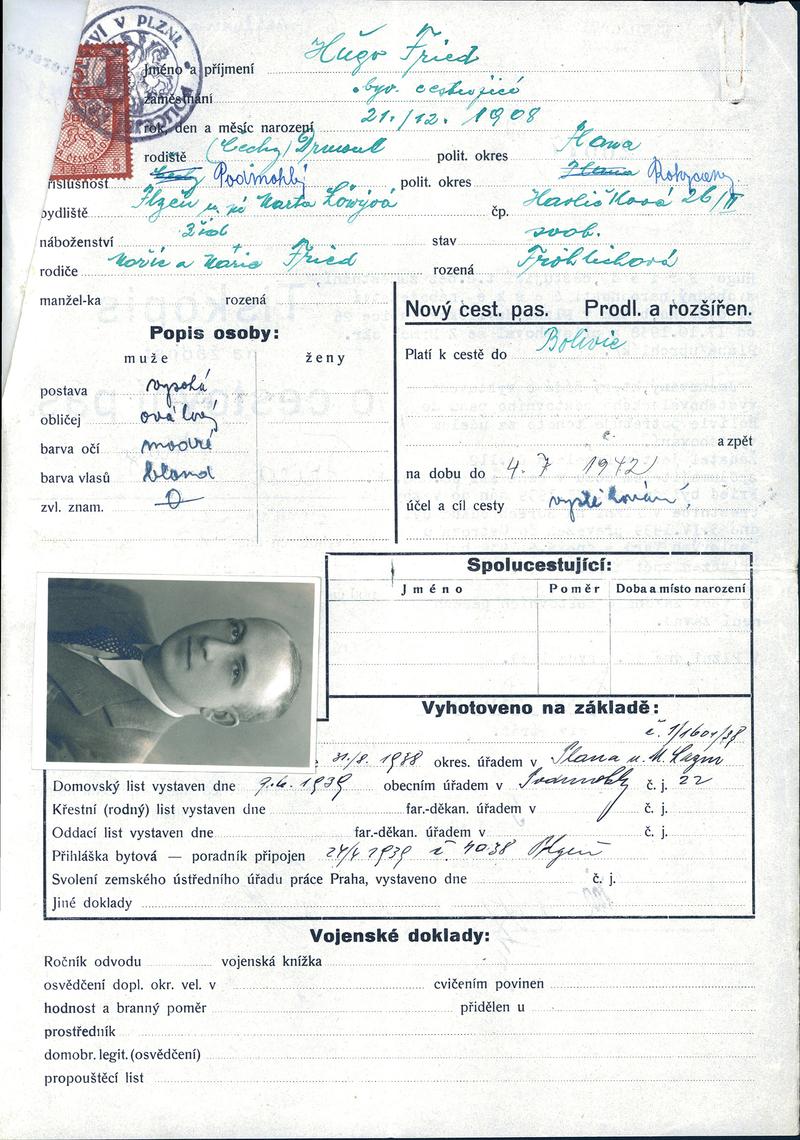 VÍ V PLZNI
Jméno a příjmení Hugo Fried
zaměstnání býv. cestující
rok, den a měsíc narození 21./12. 1908
rodiště (Čechy) Drmoul polit. okres Planá
příslušnost Podmokly polit. okres Planá Rokycany
bydliště Plzeň u pí Marta Löwyová čp. Havlíčkova 26/II
náboženství žid stav svob.
rodiče Mořic a Marie Fried rozená Fröhlichová
manžel-ka rozená
Nový cest. pas. Prodl. a rozšířen.
Popis osoby:
muže ženy
Platí k cestě do Bolivie
postava vysoká
obličej oválový
barva očí modré
a zpět
barva vlasů blond
na dobu do 4. 7 1942
zvl. znam. 0
účel a cíl cesty vystěhování
Spolucestující:
Jméno Poměr Doba a místo narození
Vyhotoveno na základě:
č. 1/1601/38
31/8. 1938 okres. úřadem v Planá u. M. Lázní
Domovský list vystaven dne 9.6. 1939 obecním úřadem v Podmokly č. j. 22
Křestní (rodný) list vystaven dne far.-děkan. úřadem v č. j.
Oddací list vystaven dne far.-děkan. úřadem v č. j.
Přihláška bytová — poradník připojen 24/4 1939 č. 4038 Plzeň
Svolení zemského ústředního úřadu práce Praha, vystaveno dne č. j.
Jiné doklady
Vojenské doklady:
Ročník odvodu vojenská knížka
osvědčení dopl. okr. vel. v cvičením povinen
hodnost a branný poměr přidělen u
prostředník
domobr. legit. (osvědčení)
propouštěcí list